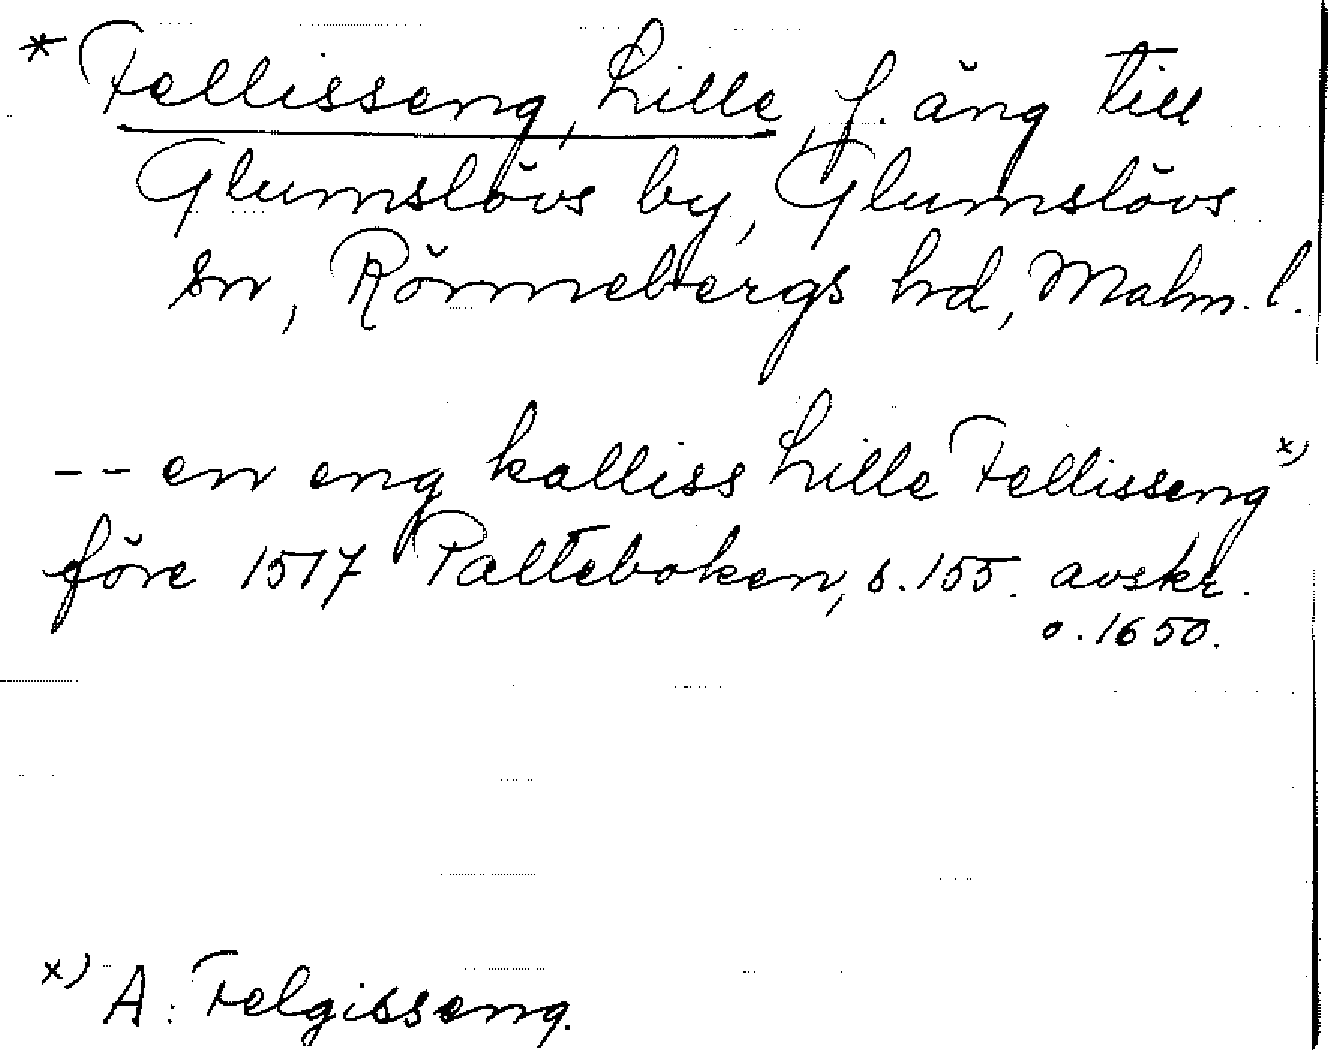 * Fellisseng, Lille, f. äng till
Glumslövs by, Glumslövs
sn, Rönnebergs hd, Malm. l.
-- en eng kalliss Lille Fellisseng x)
före 1517 Palteboken, s. 155. avskr.
o. 1650.
x) A: Felgisseng.